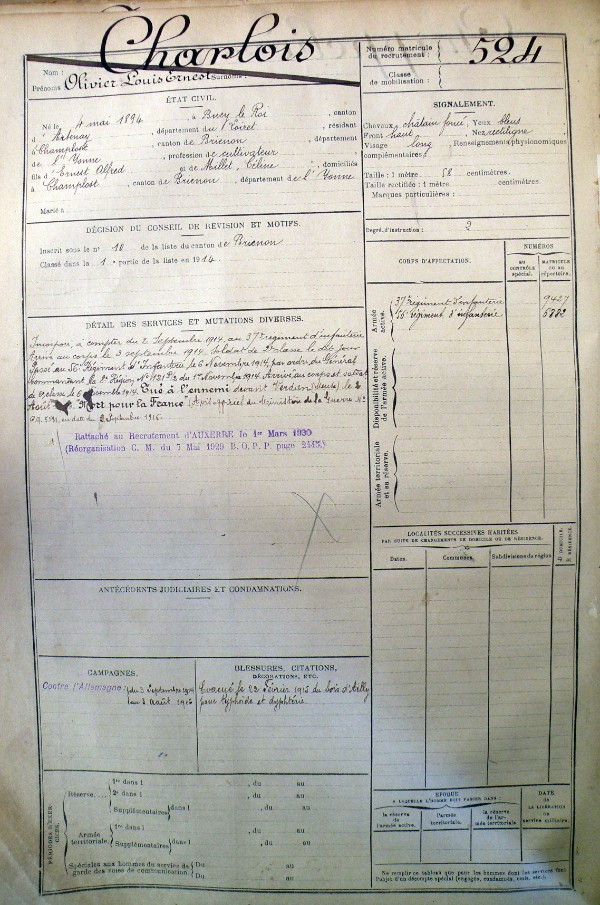 Charlois
Nom :
Prénoms : Olivier Louis Ernest Surnoms :
Numéro matricule
du recrutement :
524
Classe
de mobilisation :
ÉTAT CIVIL.
Né le 4 mai 1894, à Bucy le Roi, canton
d'Artenay, département du Loiret, résidant
à Champlost, canton de Brienon, département
de l'Yonne, profession de cultivateur
fils d'Ernest Alfred et de Millet, Céline, domiciliés
à Champlost, canton de Brienon, département de l'Yonne
Marié à
DÉCISION DU CONSEIL DE RÉVISION ET MOTIFS.
Inscrit sous le n° 10 de la liste du canton de Brienon
Classé dans la 1e partie de la liste en 1914.
DÉTAIL DES SERVICES ET MUTATIONS DIVERSES.
Incorporé à compter du 2 Septembre 1914 au 37e régiment d'infanterie
Arrivé au corps le 3 septembre 1914. Soldat de 2e classe le dit jour
Passé au 56e Régiment d'Infanterie le 6 Novembre 1914, par ordre du Général
commandant la 8e Région du 1er Novembre 1914. Arrivé au corps et
le 6 1914. Tué à l'ennemi devant Verdun (Meuse) le 2
Août "Mort pour la France" (Avis officiel du Ministère de la Guerre N°
en date du 2 Septembre 1916
Rattaché au Recrutement d'AUXERRE le 1er Mars 1930
(Réorganisation C. M. du 7 Mai 1929 B. O. P. P. page 2443.)
ANTÉCÉDENTS JUDICIAIRES ET CONDAMNATIONS.
CAMPAGNES.
Contre l'Allemagne : du 3 Septembre 1914
au 2 Août 1916
BLESSURES, CITATIONS,
DÉCORATIONS, ETC.
Évacué le 22 février 1915 du bois d'Ailly
pour typhoïde et dyphtérie.
PÉRIODES D'EXERCICES.
Réserve.....
1re dans l , du au
2e dans l , du au
Supplémentaires dans l , du au
Armée
territoriale.
1re dans l , du au
Supplémentaires dans l , du au
Spéciales aux hommes du service de
garde des voies de communication.
Du au
Du au
SIGNALEMENT.
Cheveux châtain foncé, Yeux bleus
Front haut, Nez rectiligne
Visage long, Renseignements physionomiques
complémentaires :
Taille : 1 mètre 58 centimètres.
Taille rectifiée : 1 mètre centimètres.
Marques particulières :
Degré d'instruction : 2
CORPS D'AFFECTATION.
NUMÉROS
au
CONTRÔLE
spécial.
MATRICULE
ou au
répertoire.
Armée
active.
37e régiment d'infanterie
9427
56e régiment d'infanterie
Disponibilité et réserve
de l'armée active.
Armée territoriale
et sa réserve.
LOCALITÉS SUCCESSIVES HABITÉES
PAR SUITE DE CHANGEMENTS DE DOMICILE OU DE RÉSIDENCE.
Dates.
Communes.
Subdivisions de région.
D. DOMICILE.
R. RÉSIDENCE.
ÉPOQUE
A LAQUELLE L'HOMME DOIT PASSER DANS :
la réserve
de l'armée active.
l'armée
territoriale.
la réserve
de l'armée territoriale
DATE
de
LA LIBÉRATION
du
service militaire.
Ne remplir ce tableau que pour les hommes dont les services font
l'objet d'un décompte spécial (engagés, condamnés, omis, etc.).